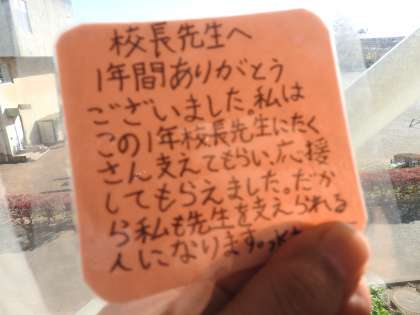 校長先生へ
1年間ありがとう
ございました。私は
この1年校長先生にたく
さん支えてもらい、応援
してもらえました。だか
ら私も先生を支えられる
人になります。